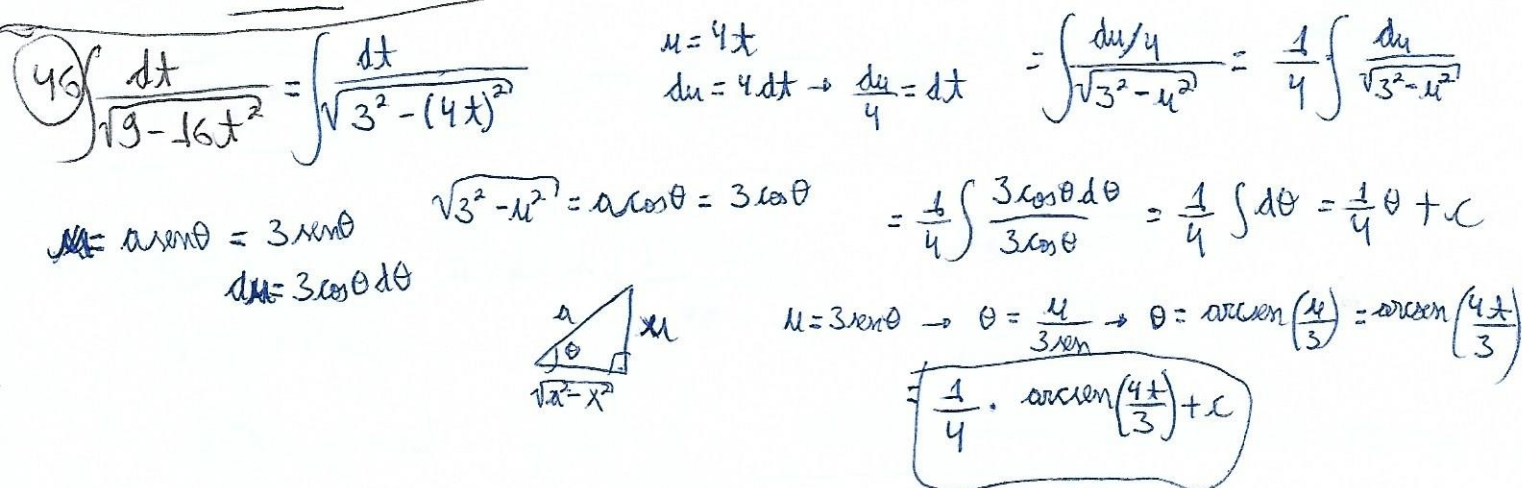 46 ∫ dt/√(9-16t²) = ∫ dt/√(3²-(4t)²)
u = 4t
du = 4.dt → du/4 = dt
= ∫ (du/4)/√(3²-u²) = 1/4 ∫ du/√(3²-u²)
u = a senθ = 3 senθ
du = 3 cosθ dθ
√(3²-u²) = a cosθ = 3 cosθ
= 1/4 ∫ 3 cosθ.dθ/3 cosθ = 1/4 ∫ dθ = 1/4 θ + c
a
θ
u
√(a²-x²)
u = 3 senθ → θ = u/3sen → θ = arcsen(u/3) = arcsen(4t/3)
= 1/4 . arcsen(4t/3) + c